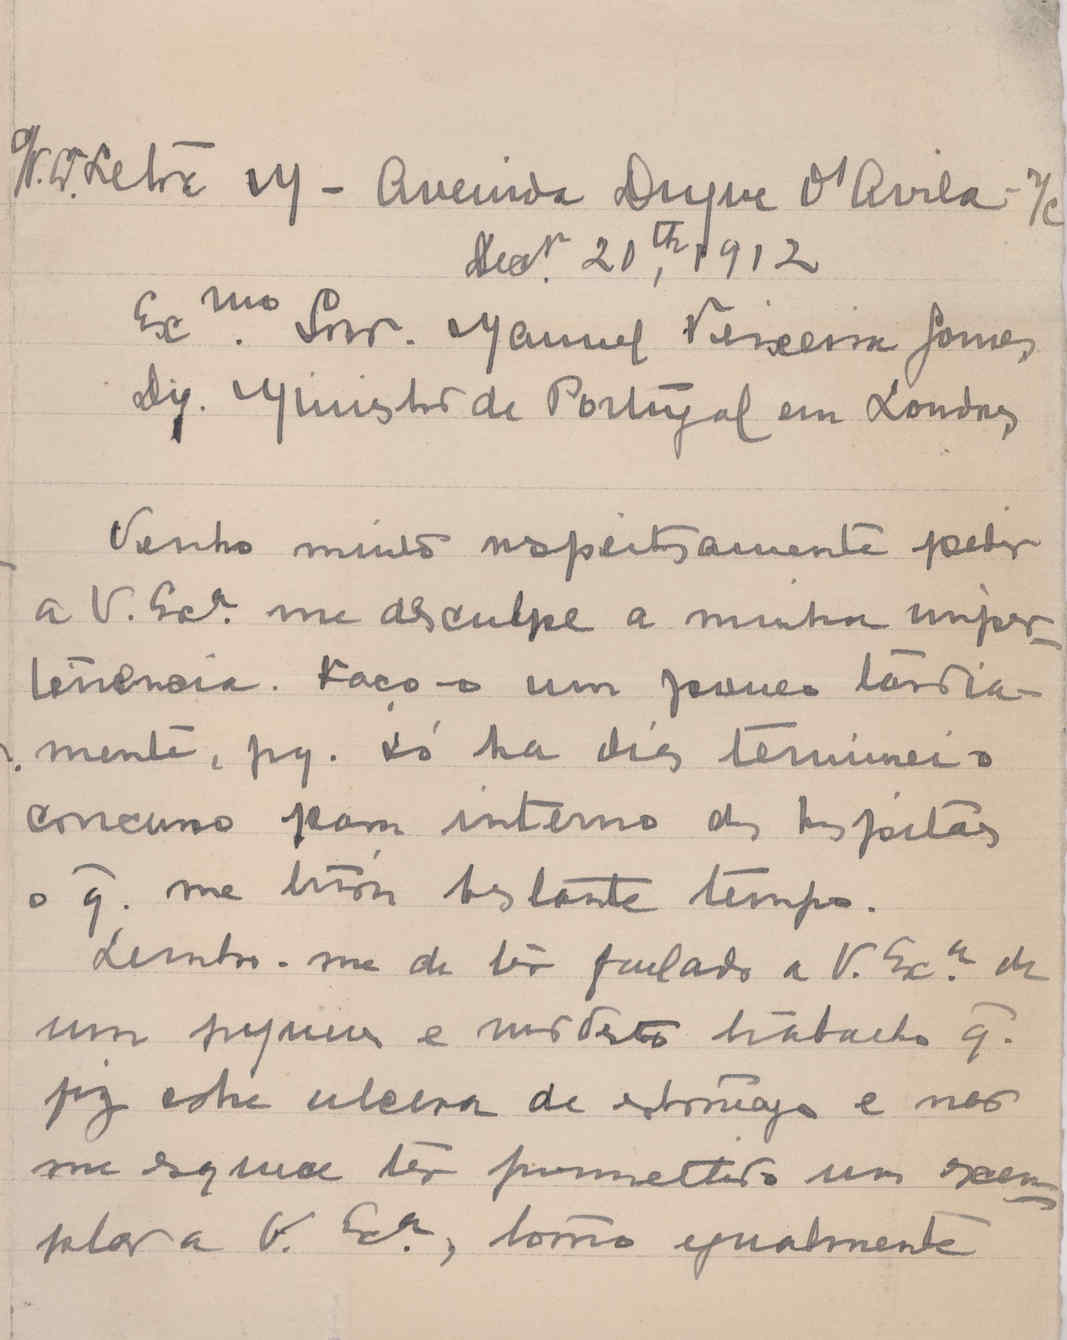 Letra M - Avenida Duque d'Avila - r/c
Decr. 20th, 1912
Exmo. Snr. Manuel Teixeira Gomes,
Dig. Ministro de Portugal em Londres,
Venho muito respeitosamente pedir
a V. Exa. me desculpe a minha imper-
tinencia. Faço-o um pouco tardia-
mente, pq. só ha dias terminei o
concurso para interno dos hospitaes
o q. me tirou bastante tempo.
Lembro-me de ter fallado a V. Exa. de
um pequeno e modesto trabalho q.
fiz sobre ulcera de estomago e não
me esquece ter promettido um exem-
plar a V. Exa., como egualmente